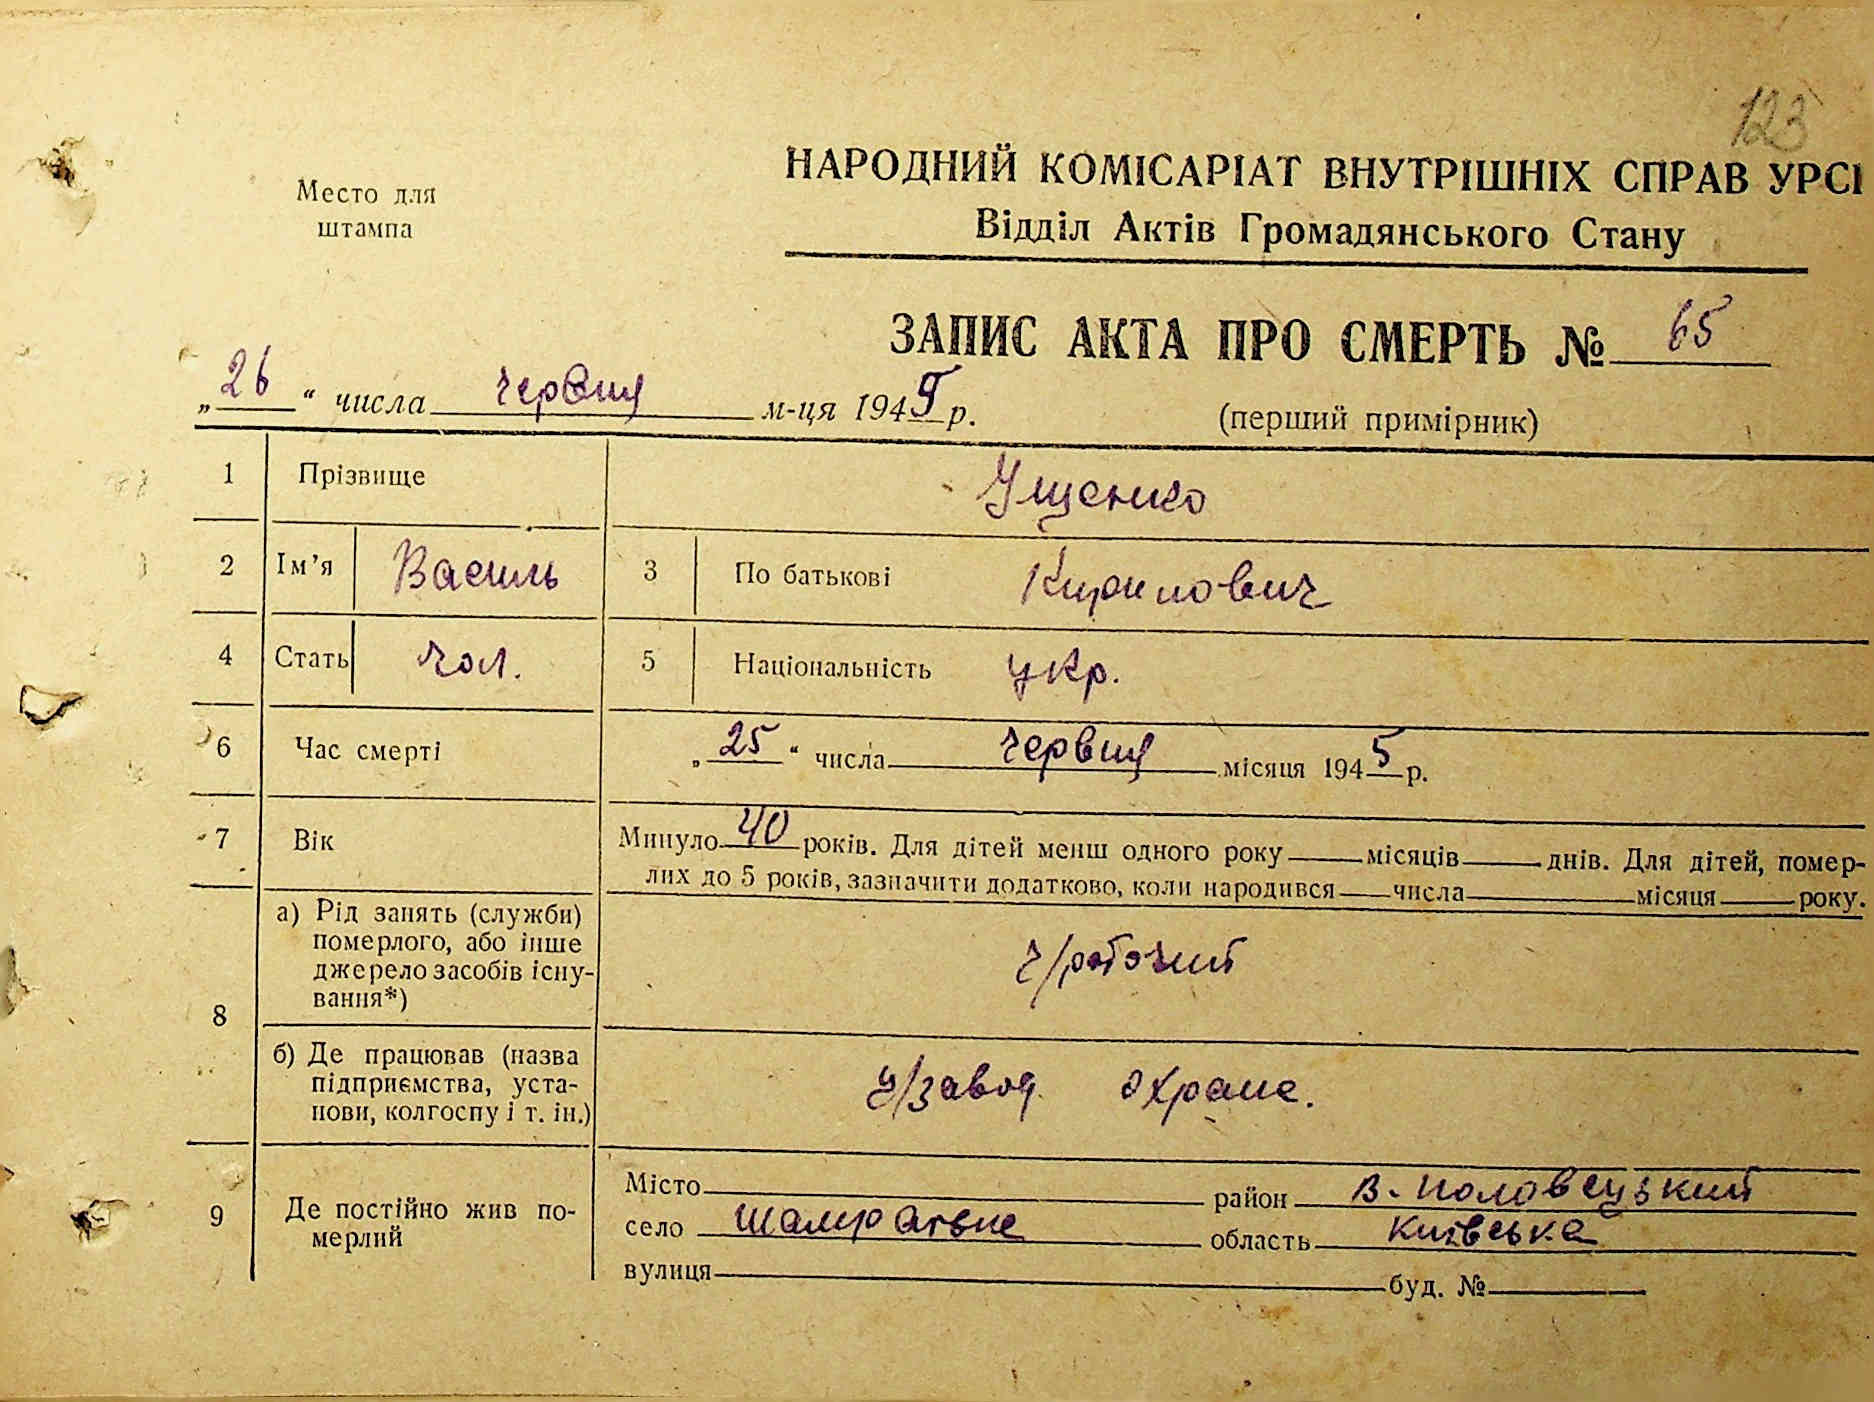 123
НАРОДНИЙ КОМІСАРІАТ ВНУТРІШНІХ СПРАВ УРСР
Место для
штампа
Відділ Актів Громадянського Стану
ЗАПИС АКТА ПРО СМЕРТЬ № 65
„26“ числа червня м-ця 1945 р.
(перший примірник)
1 Прізвище Ущенко
2 Ім’я Василь 3 По батькові Кирилович
4 Стать чол. 5 Національність укр.
6 Час смерті „25“ числа червня місяця 1945 р.
7 Вік Минуло 40 років. Для дітей менш одного року місяців днів. Для дітей, помер-
лих до 5 років, зазначити додатково, коли народився числа місяця року.
8 а) Рід занять (служби)
померлого, або інше
джерело засобів існу-
вання*)
ч/робочий
б) Де працював (назва
підприємства, уста-
нови, колгоспу і т. ін.)
ц/завод охрана.
9 Де постійно жив по-
мерлий
Місто район В. Половецький
село область Київська
вулиця буд. №